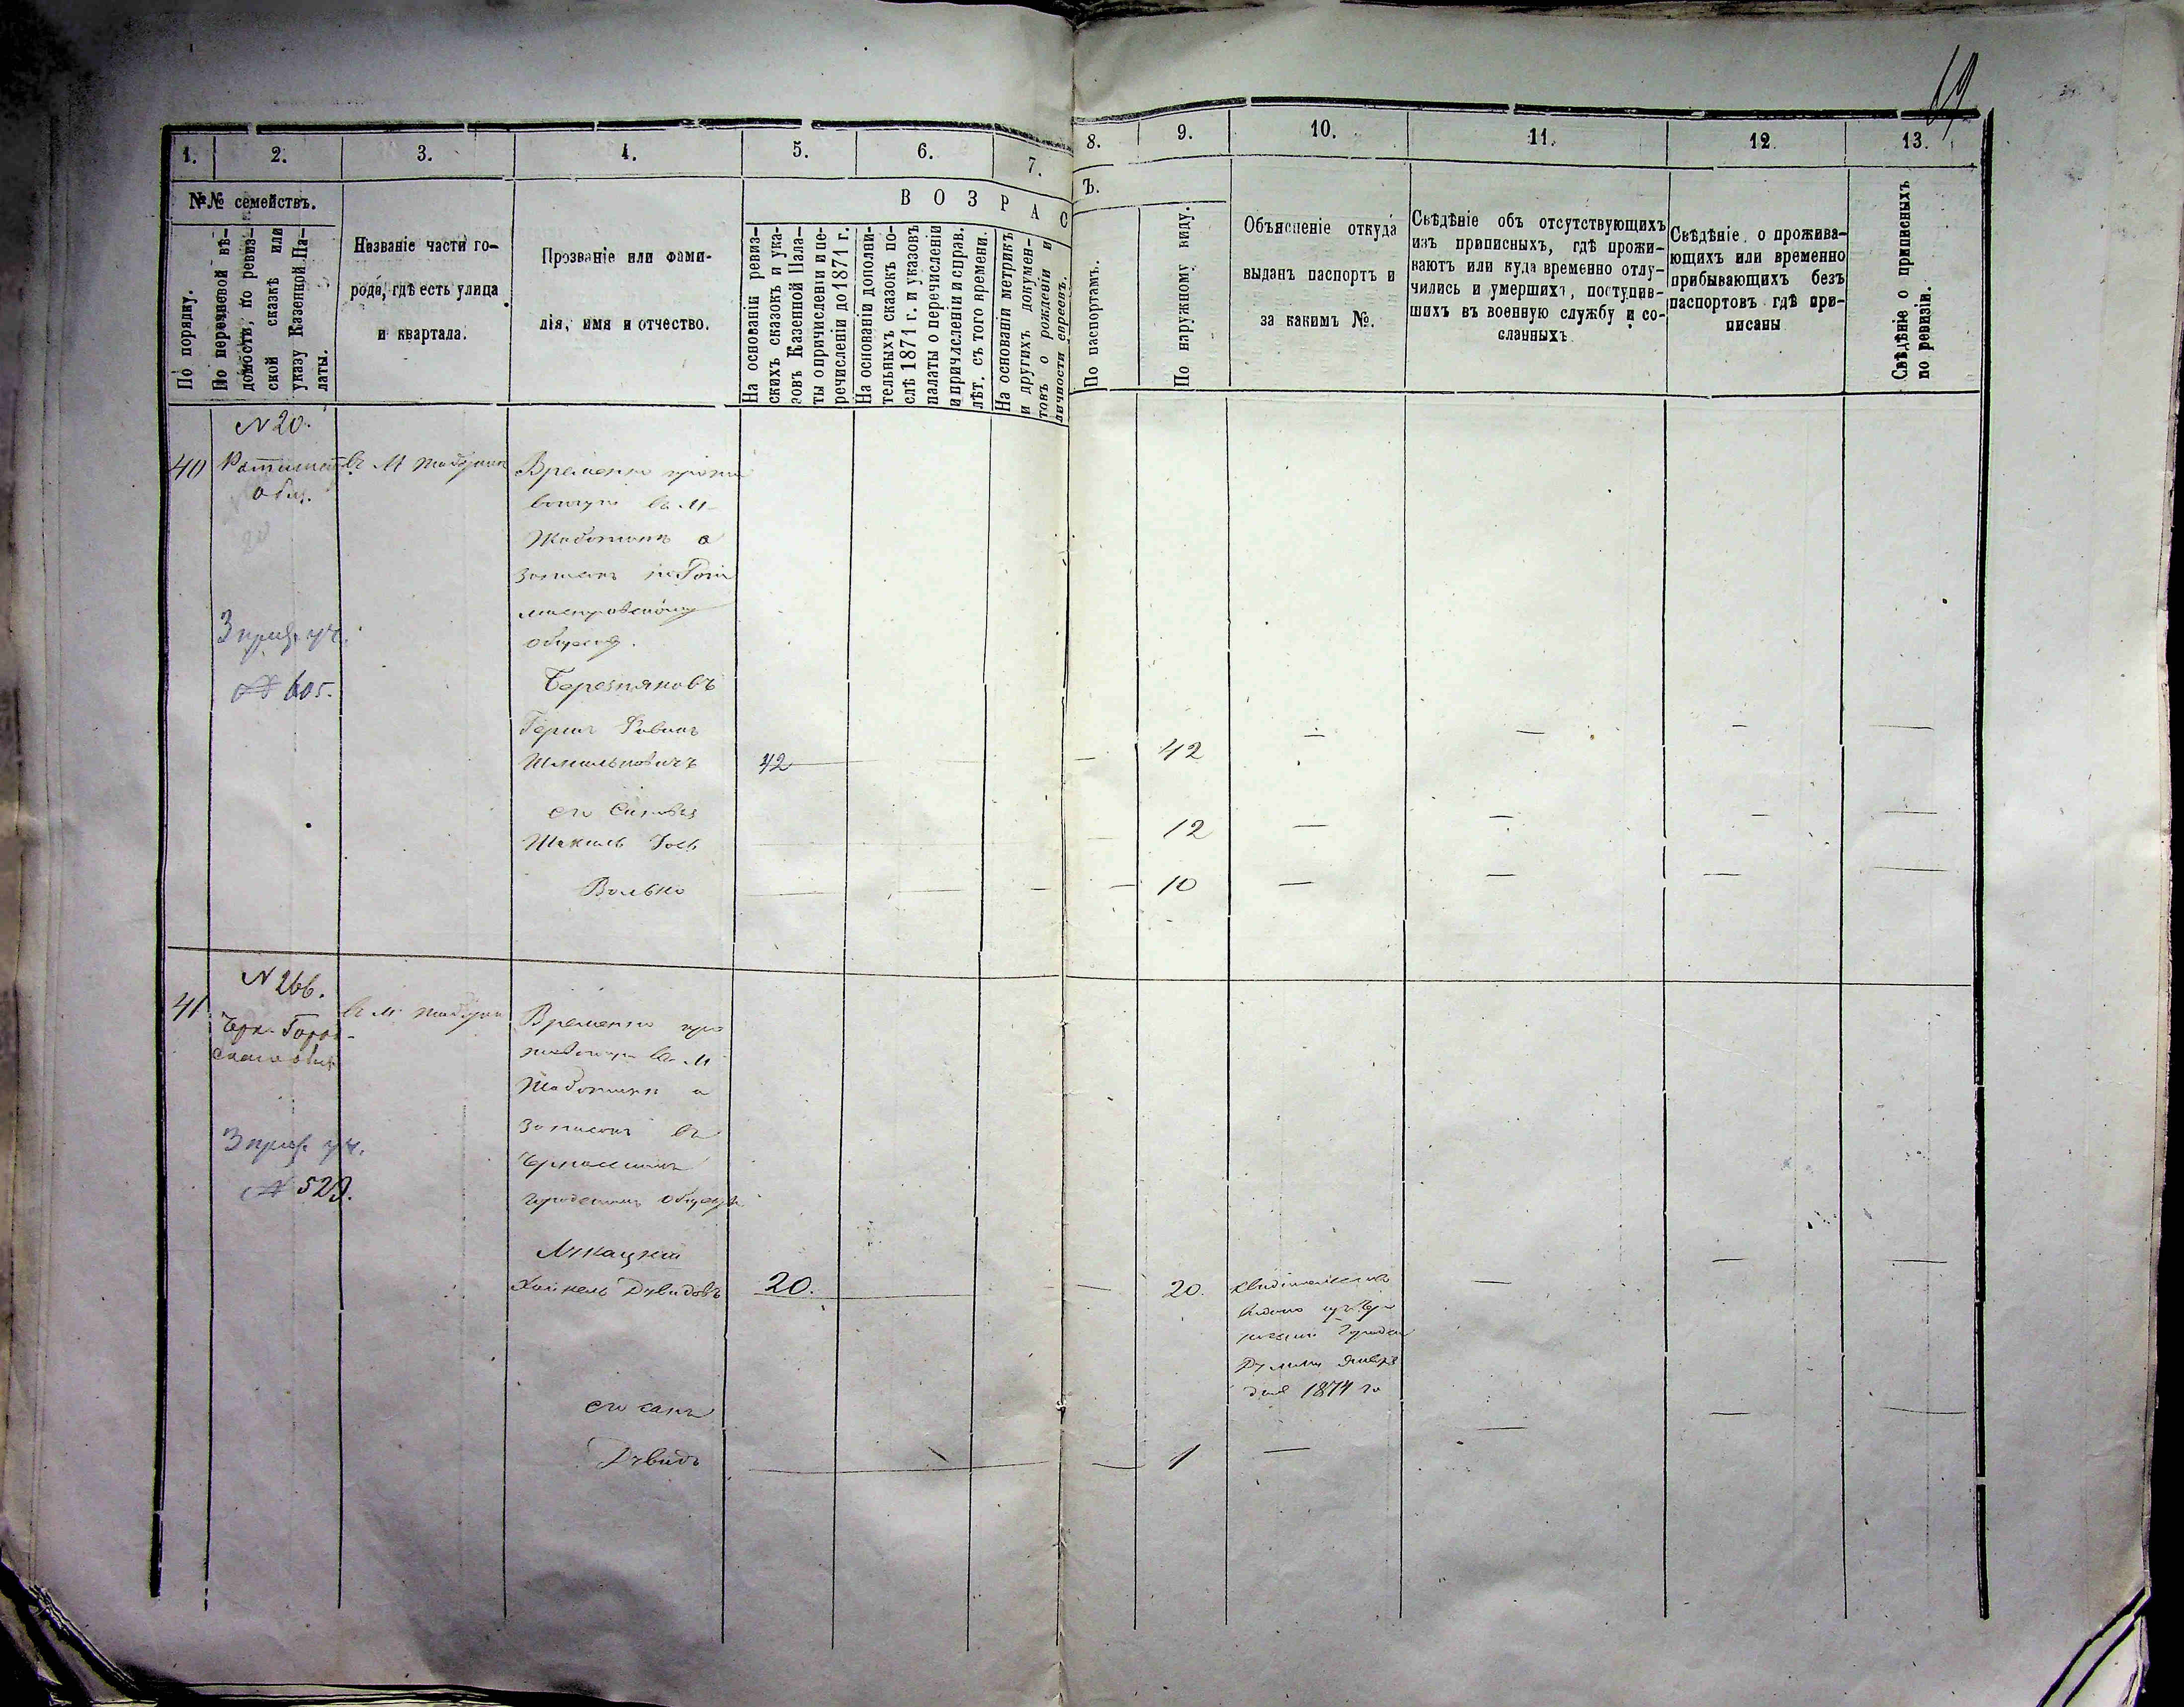 69
1. 2. 3. 4. 5. 6. 7. 8. 9. 10. 11. 12. 13.
№№ семействъ.
По порядку.
По перечневой вѣ-
домости, по ревиз-
ской сказкѣ или
указу Казенной Па-
латы.
Названіе части го-
рода, гдѣ есть улица
и квартала.
Прозваніе или фами-
лія, имя и отчество.
ВОЗРАСТЪ.
На основаніи ревиз-
скихъ сказокъ и ука-
зовъ Казенной Пала-
ты о причисленіи и пе-
речисленіи до 1871 г.
На основаніи дополни-
тельныхъ сказокъ по-
слѣ 1871 г. и указовъ
палаты о перечисленіи
и причисленіи и справ.
лѣт. съ того времени.
На основаніи метрикъ
и другихъ докумен-
товъ о рожденіи и
личности евреевъ.
По паспортамъ.
По наружному виду.
Объясненіе откуда
выданъ паспортъ и
за какимъ №.
Свѣдѣніе объ отсутствующихъ
изъ приписныхъ, гдѣ прожи-
ваютъ или куда временно отлу-
чились и умершихъ, поступив-
шихъ въ военную службу и со-
сланныхъ
Свѣдѣніе о прожива-
ющихъ или временно
прибывающихъ безъ
паспортовъ гдѣ при-
писаны
Свѣдѣніе о приписныхъ
по ревизіи.
N 20.
40
общ.
въ М Жаботинѣ
Временно прожи
вающій въ М
Жаботинѣ а
записанъ по
обществу.
3 приз. уч.
№ 605.
Березняковъ
Гершъ
Шмульковичъ 42 — — — 42 — — — —
его сыновья
Іось — — — 12 — — — —
Волько — — — — 10 — — — —
N 266.
41
Город-
скаго общ
въ М Жаботинѣ
Временно про
живающій въ М
Жаботинѣ а
записанъ въ
Черкасскомъ
городскомъ обществѣ
3 приз. уч.
№ 529.
Лукацкій
Хаимель Дувидовъ 20. — — — 20. — — —
выдано изъ Чер
Городск
Думы Января
дня 1874 го
его сынъ
Дувидъ — — — 1 — — — —